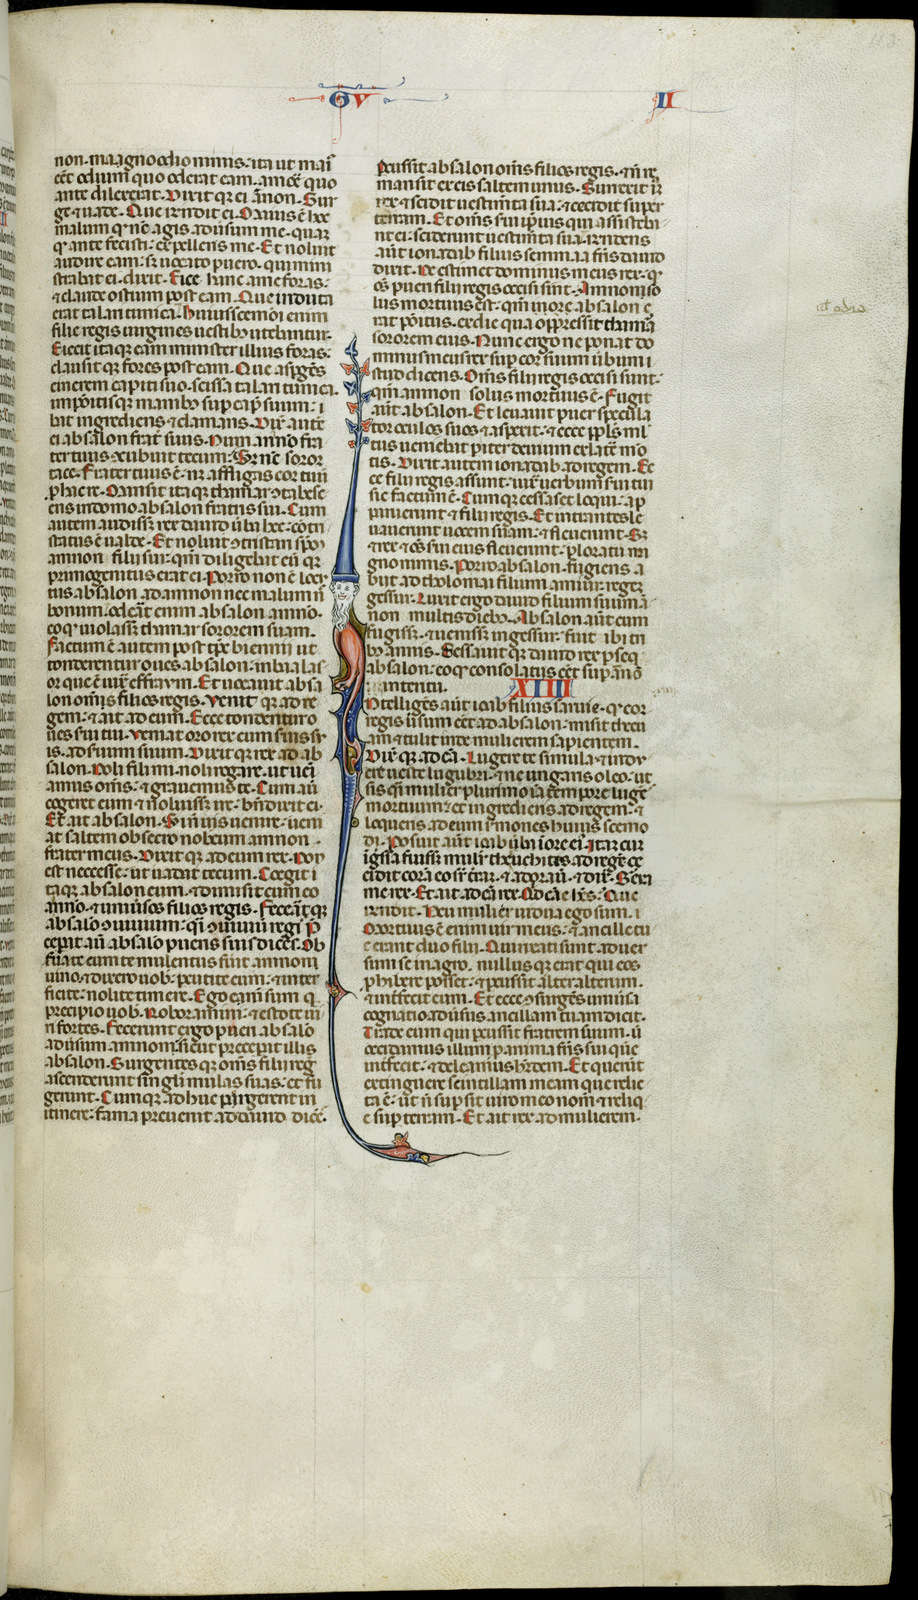 GV II
non · magno odio nimis : ita ut mai9
eēt odium quo oderat eam · amoē quo
ante dilexerat · Dixit q3 ei amon · Sur
ge & uade · Que rn̄dit ei · Maius ē hec
malum q nc agis adūsum me · quā
q ante fecisti : expellens me · Et noluit
audire eam : s3 uocato puero · qui mini
strabat ei · dixit · Eice hanc a me foras :
& claude ostium post eam · Que induta
erat talari tunica · huiuscemoi enim
filie regis uirgines uestibus utebantur ·
Eiecit itaq3 eam minister illius foras :
clausit q3 fores post eam · Que aspgēs
cinerem capiti suo · scissa talari tunica ·
impositisq3 manib3 sup cap suum : i
bat ingrediens & clamans · Dix aute
ei absalon frat suus · Num amon fra
ter tuus xcubuit tecum : S3 nc soror
tace · frater tuus ē · n affligas cor tuū
p hac re · Mansit itaq3 thamar 9tabesc
ens in domo absalon fratris sui · Cum
autem audiss3 rex dauid ūba hec : cōtri
status ē ualde · Et noluit 9tristari spm
amnon filii sui · qm diligebat eū q
primogenitus erat ei · Porro non ē locu
tus absalon ad amnon nec malum n
bonum · oderat enim absalon amno ·
eo q uiolass3 thamar sororem suam ·
Factum ē autem post tps biennii ut
tonderentur oues absalon · in baalas
or que ē iux effraym · Et uocauit absa
lon om̄s filios regis · Venit q3 ad re
gem : & ait ad eum · Ecce tondentur o
ues serui tui · Veniat oro rex cum seruis su
is · ad seruum suum · Dixit q3 rex ad ab
salon · Noli fili mi · noli rogare · ut ueni
amus om̄s : & grauemus te · Cum aū
cogeret eum & noluiss3 ire : bn̄dixit ei ·
Et ait absalon · Si nuis uenire : ueni
at saltem obsecro nobcum amnon
frater meus · Dixit q3 ad eum rex · Non
est necesse · ut uadat tecum · Coegit i
taq3 absalon eum · & dimisit cum eo
amno · & uniusos filios regis · Fecātq3
absalo 9uiuium : q̄i 9uiuiū regi P
cepit aū absalo pueris suis dices · Ob
suate cum temulentus fuit amnon
uino · & dixero uob · percutite eum : & inter
ficite · nolite timere · Ego enim sum q
precipio uob · Roboramini : & estote ui
ri fortes · Fecerunt ergo pueri absalo
adūsum amnon · sicut precepit illis
absalon · Surgentes q3 om̄s filii reg
ascenderunt singli mulas suas : et fu
gerunt · Cumq3 adhuc pgerent in
itinere : fama preuenit ad dauid dicē
Pcussit absalon om̄s filios regis · & n re
mansit ex eis saltem unus · Surrexit
rex & scidit uestimta sua : & cecidit super
terram · Et om̄s serui ipius qui assisteba
nt ei : sciderunt uestimta sua · Rn̄dens
aūt ionadab filius semmaa fr̄is dauid
dixit · Ne estimet dominus meus rex · q
os pueri filii regis occisi sint · Amnon so
lus mortuus est · qm in ore absalon e
rat positus · ex die qua oppressit thamā
sororem eius · Nunc ergo ne ponat do
minus meus rex sup cor suum ūbum i
stud dicens · Om̄s filii regis occisi sunt ·
qm amnon solus mortuus ē · Fugit
aūt absalon · Et leuauit puer specula
tor oculos suos & aspexit : & ecce ppls ml
tus ueniebat p iter deuium ex latē mo
tis · Dixit autem ionadab ad regem · Ec
ce filii regis assunt · iux uerbum serui tui
sic factum ē · Cumq3 cessasset loqui : ap
paruerunt & filii regis · Et intrantes le
uauerunt uocem suam : & fleuerunt · S3
& rex & os serui eius fleuerunt · ploratu ma
gno nimis · Porro absalon · fugiens a
biit ad tholomai filium amiur reges
gessur · Luxit ergo dauid filium suum
non multis dieb3 · Absalon aūt cum
fugiss3 · & ueniss3 in gessur : fuit ibi tri
b3 annis · Cessauit q3 dauid rex pseq
absalon : eo q consolatus eēt sup amō
interitu · XIIII
Ntelligēs aūt ioab filius saruie · q cor
regis ūsum eēt ad absalon : misit thecu
am & tulit inde mulierem sapientem ·
Dix q3 ad eā · Lugere te simula · & indu
ere ueste lugubri · & ne ungaris oleo · ut
sis q̄i mulier plurimo iā tempore luge
mortuum : et ingrediens ad regem : &
loqueris ad eum smones huiuscemo
di · Posuit aūt ioab ūba in ore ei · Itaq3 cu
ig̃ssa fuiss3 mulr thecuitis ad rege ce
cidit corā eo sr terā · & adorauit · & dix · Serua
me rex · Et ait ad eā rex · Qd cāe hes · Que
rn̄dit · Heu mulier uidua ego sum ·
Mortuus ē enim uir meus · & ancille tu
e erant duo filii · Qui rixati sunt aduer
sum se in agro · nullus q3 erat qui eos
phibere posset · & pcussit alter alterum ·
& inrfecit eum · Et ecce 9surgēs uniūsa
cognatio · adūsus ancillam tuam dicit ·
Trade eum qui pcussit fratrem suum · ut
occidamus illum p anima fr̄is sui que
inrfecit : & deleamus heredem · Et querūt
extinguere scintillam meam que relic
ta ē : ut n̄ supsit uiro meo nom & reliq
e sup terram · Et ait rex ad mulierem ·